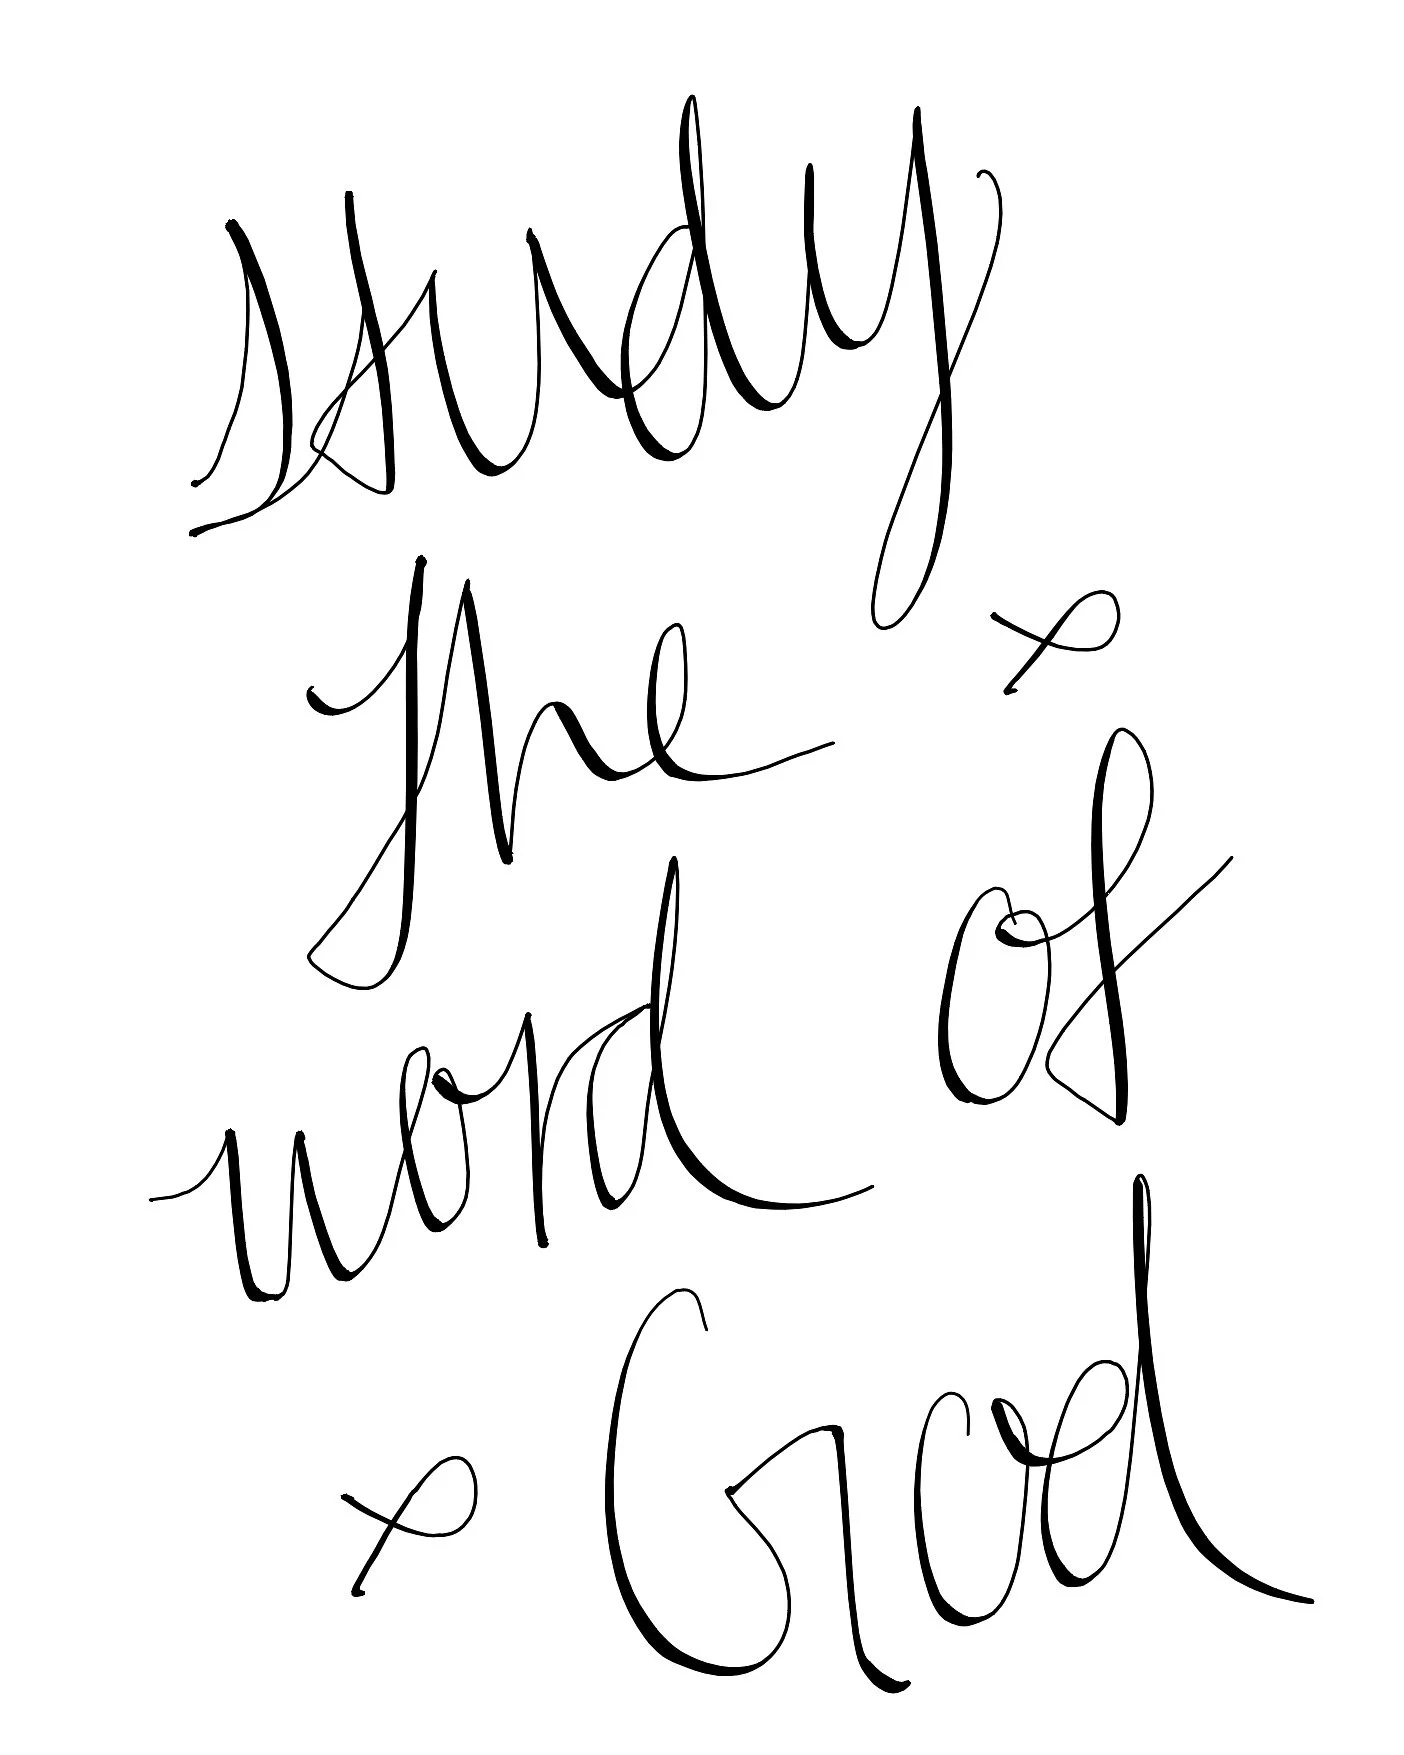 study
the
word of
God